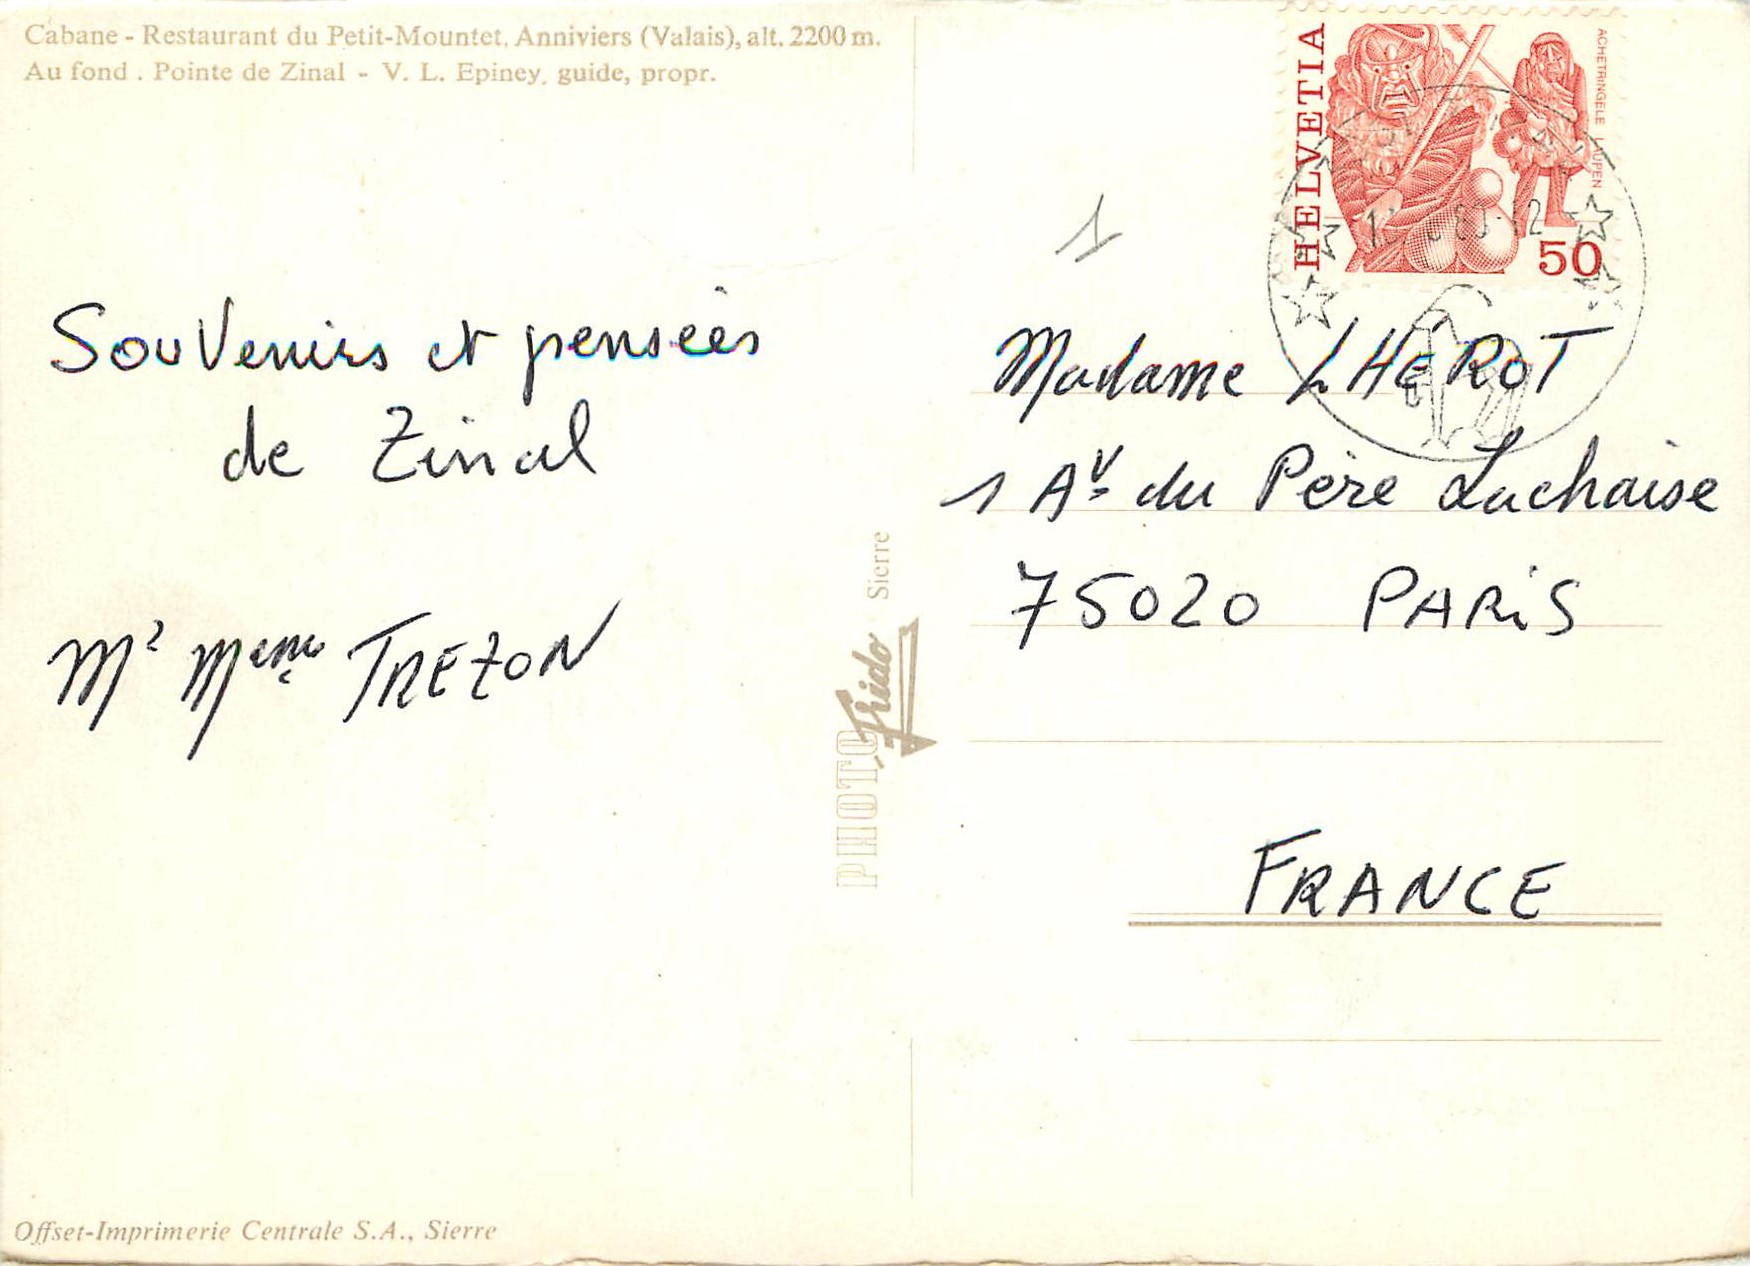 Cabane - Restaurant du Petit-Mountet, Anniviers (Valais), alt. 2200 m.
Au fond . Pointe de Zinal - V. L. Epiney, guide, propr.
Souvenirs et pensées
de Zinal
Mr Meme TREZON
Offset-Imprimerie Centrale S.A., Sierre
PHOTO Frido Sierre
HELVETIA
ACHETRINGELE LAUPEN
50
1
Madame LHÉROT
1 Av. du Père Lachaise
75020 PARiS
FRANCE